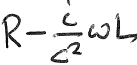 R - i/c² ωL